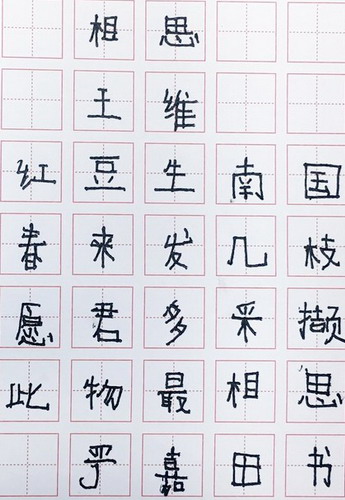 相思
王维
红豆生南国
春来发几枝
愿君多采撷
此物最相思
嘉田书